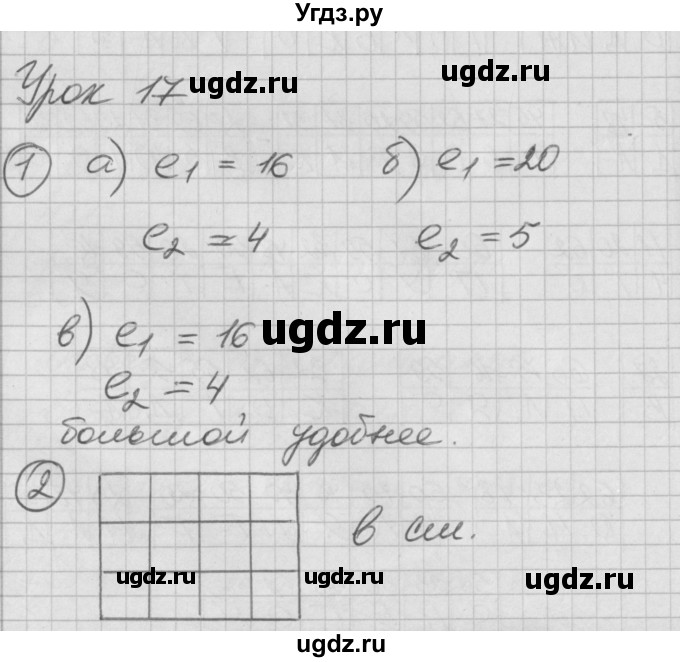 Угдз.ру
Урок 17 ugdz.ru ugdz.ru
① а) e₁ = 16 б) e₁ = 20
e₂ = 4 e₂ = 5
в) e₁ = 16 ugdz.ru
e₂ = 4
большой удобнее.
② в см.
ugdz.ru ugdz.ru ugdz.ru
ugdz.ru